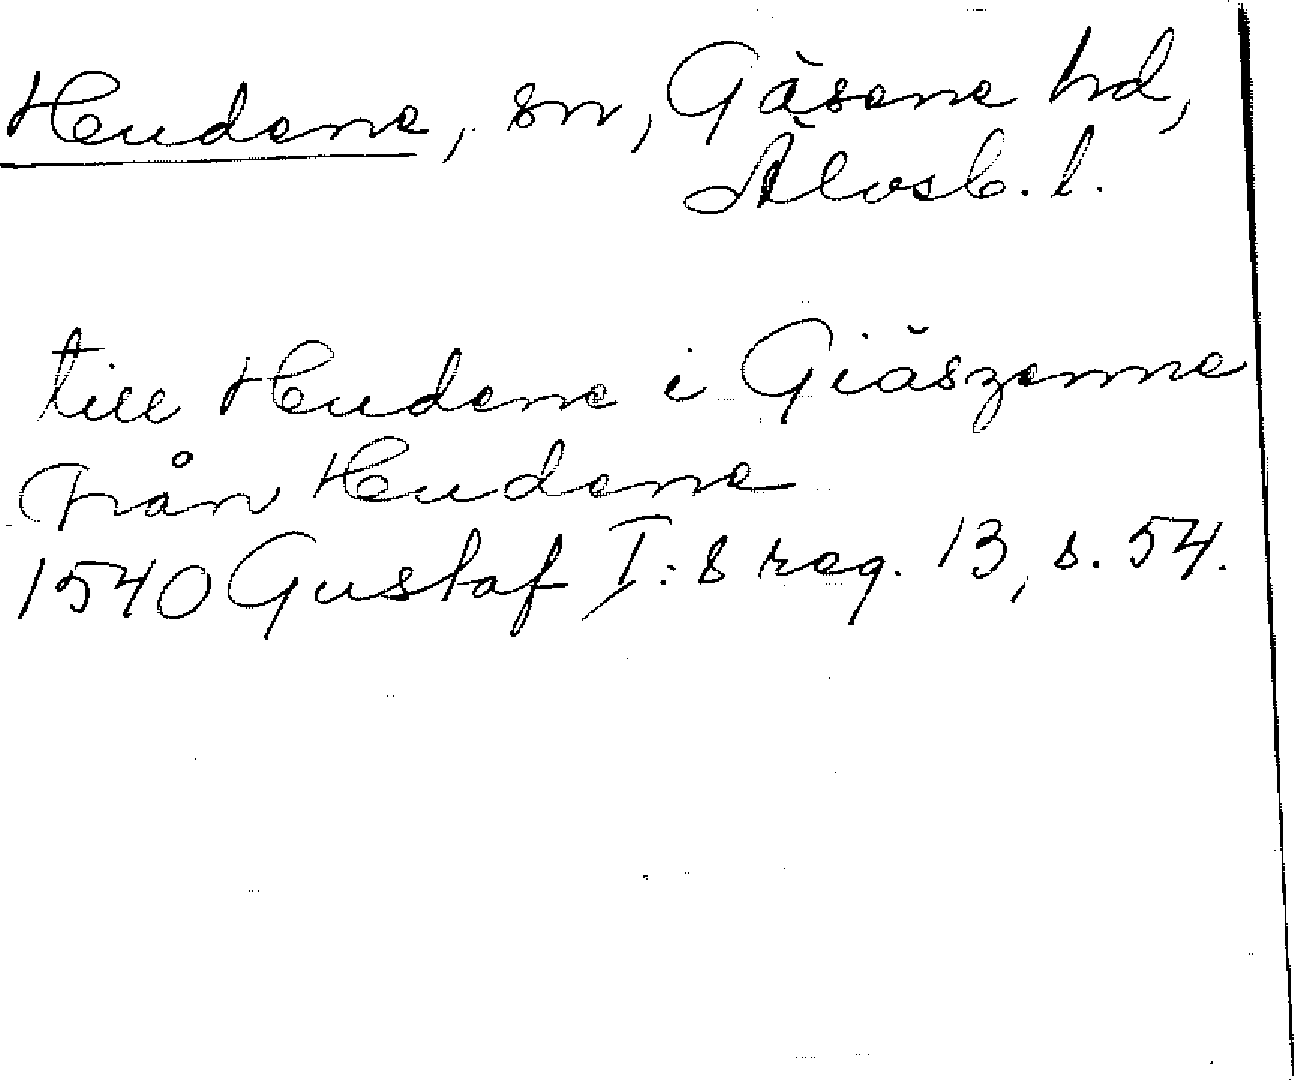 Hudene, sn, Gäsene hd,
Älvsb. l.
till Hudene i Giäszenne
från Hudene
1540 Gustaf I:s reg. 13, s. 54.